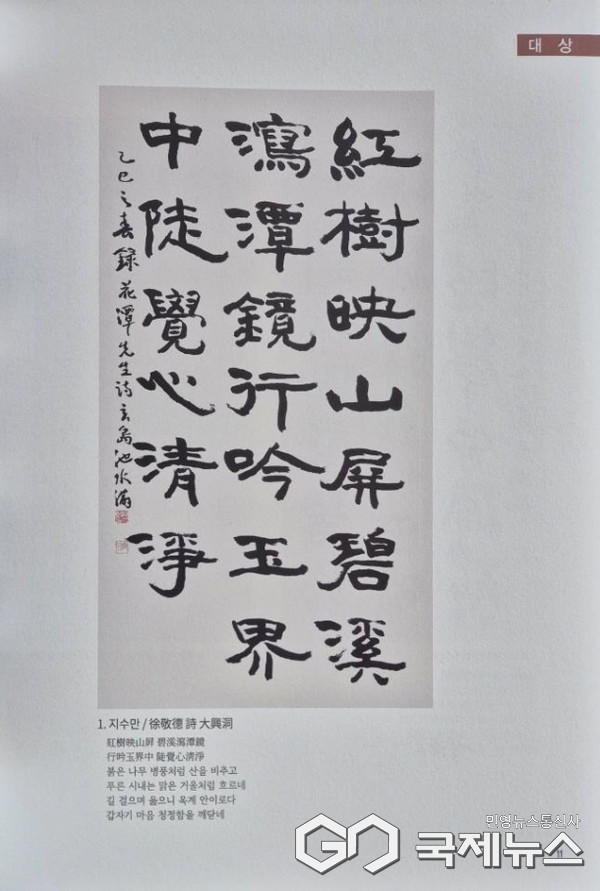 대 상
紅樹映山屏碧溪
瀉潭鏡行吟玉界
中陡覺心清淨
乙巳之春錄花潭先生詩 池水滿
1. 지수만 / 徐敬德 詩 大興洞
紅樹映山屛 碧溪瀉潭鏡
行吟玉界中 陡覺心淸淨
붉은 나무 병풍처럼 산을 비추고
푸른 시내는 맑은 거울처럼 흐르네
길 걸으며 읊으니 옥계 안이로다
갑자기 마음 청정함을 깨닫네
민영뉴스통신사
GO 국제뉴스
11